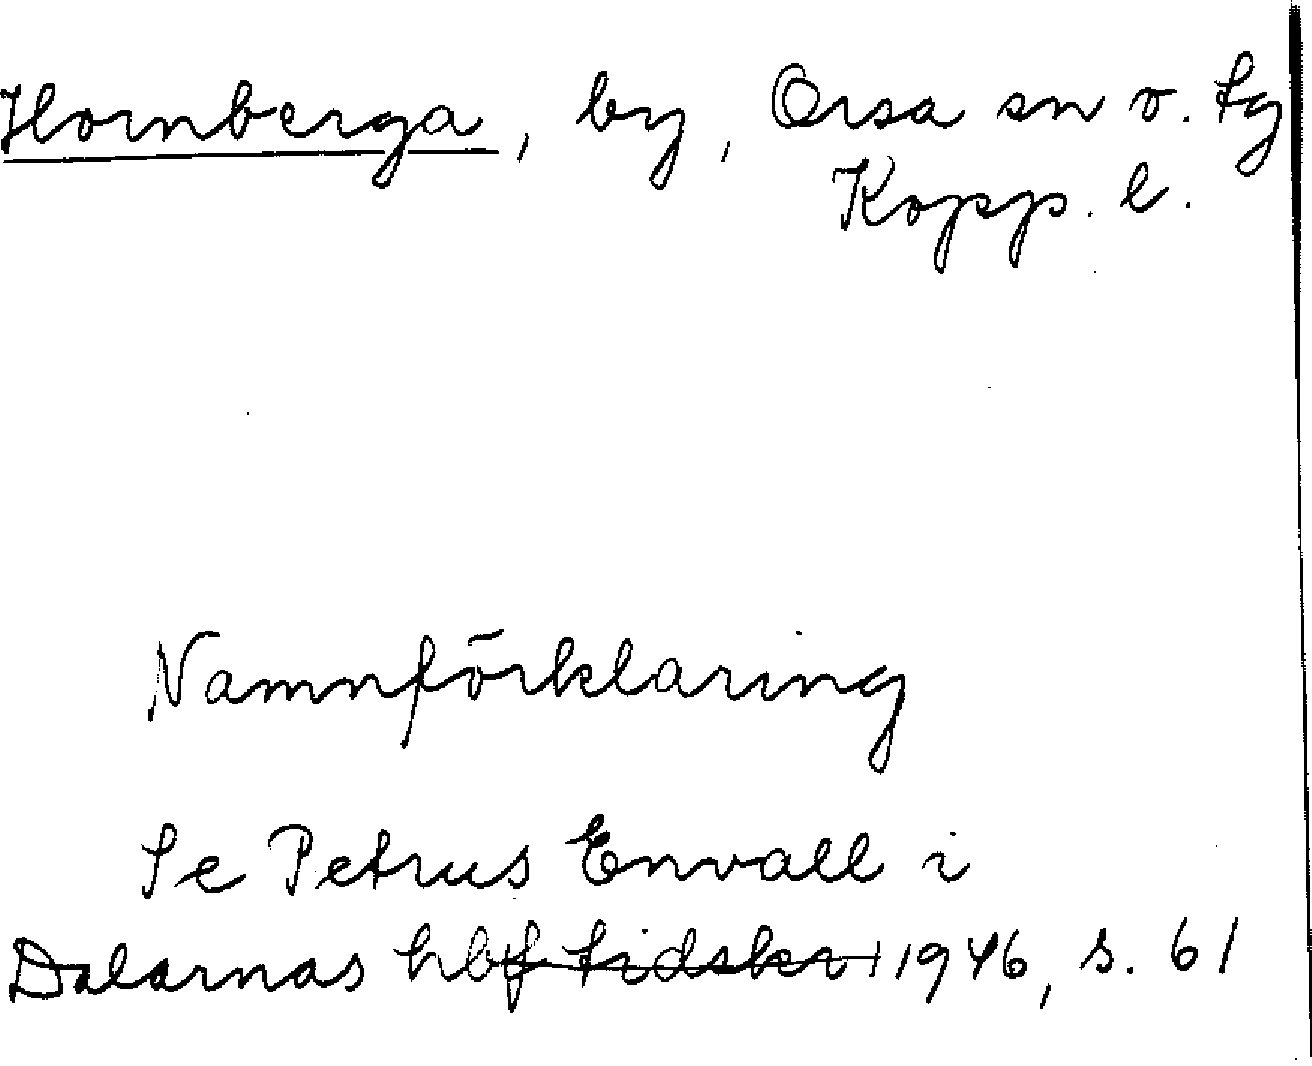 Hornberga, by, Orsa sn o. tg
Kopp. l.
Namnförklaring
Se Petrus Envall i
Dalarnas hbf tidskr 1946, s. 61